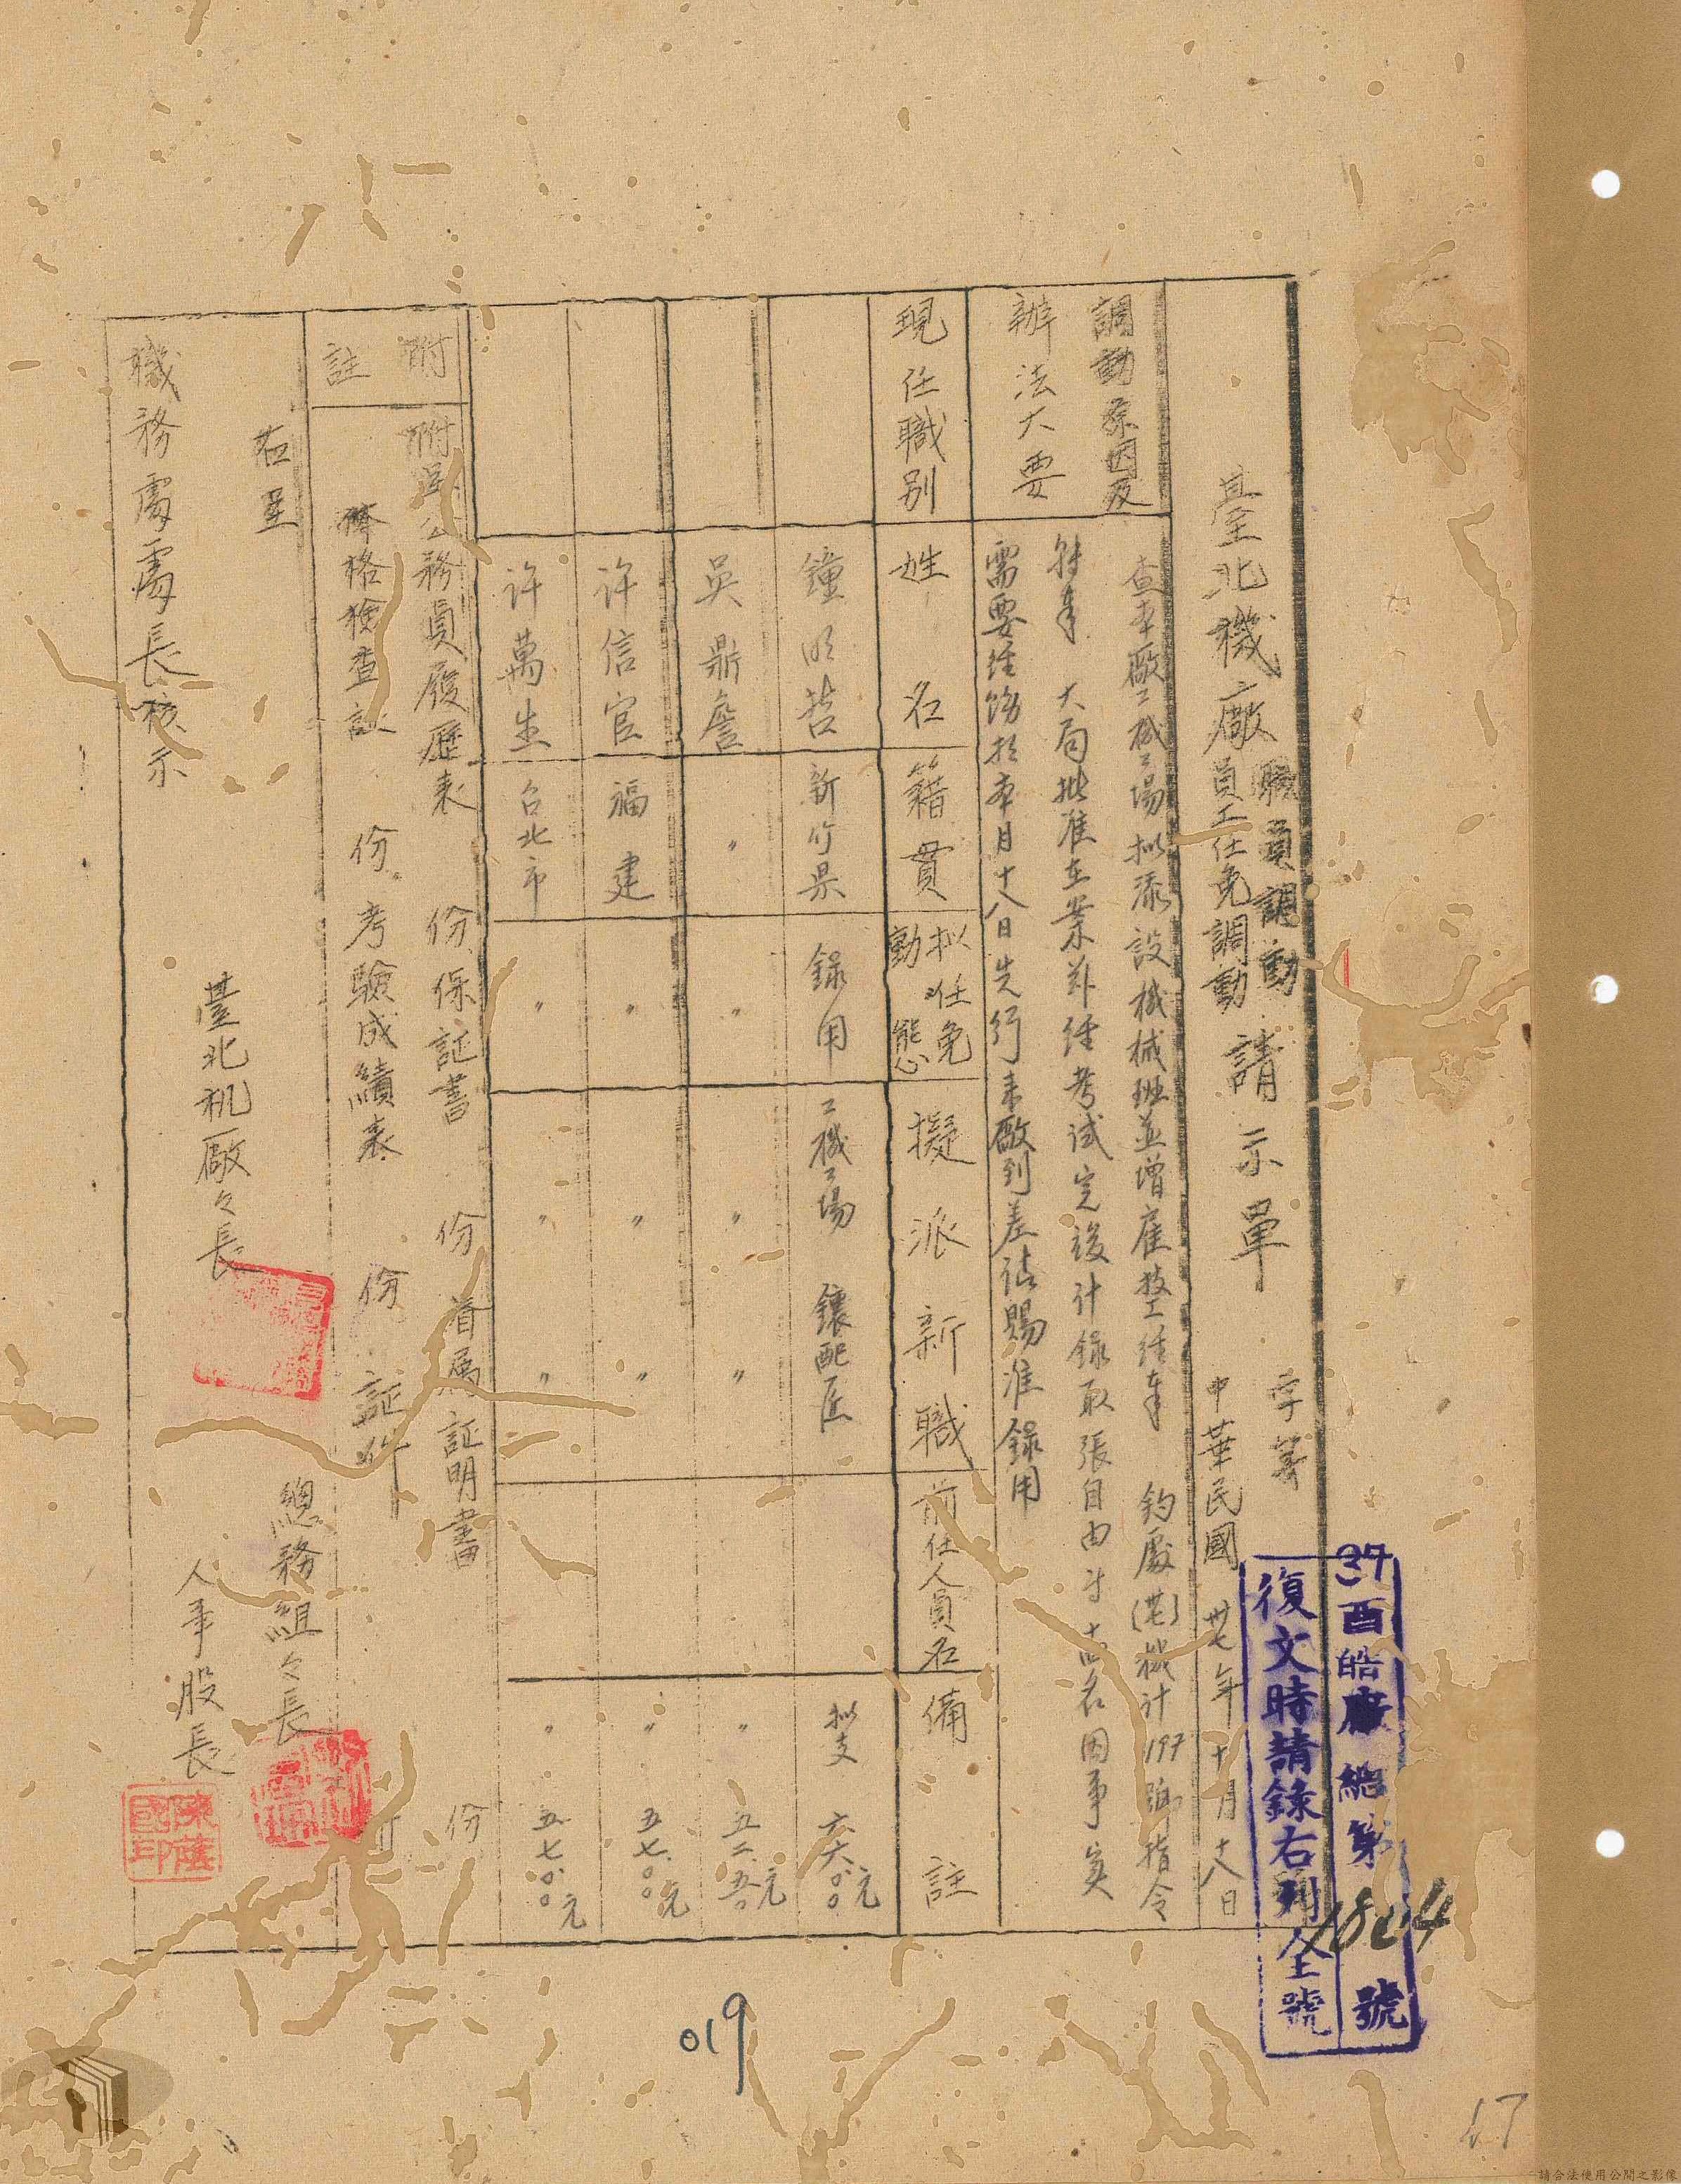 37酉皓廠總第1804號
復文時請錄右列全號
臺北機廠職員調動員工任免調動請示單
字第
中華民國卅七年十月十八日
調動原因及
辦法大要
查本廠工機工場拟添設機械班並增雇技工經奉 鈞處(卅七)機計197號指令
轉奉 大局批准在案茲經考試完竣計錄取張自由等十四名因事實
需要經飭於本月十八日先行來廠到差請賜准錄用
現任職別
姓名
籍貫
拟任免
動態
擬派新職
前任人員名
備註
新竹県
錄用
工機工場 鑲配匠
拟支
元
吳鼎詹
〃
〃
〃
〃
〃
元
許信官
福建
〃
〃
〃
〃
五七.〇〇元
許萬生
台北市
〃
〃
〃
〃
五七.〇〇元
附註
附呈公務員履歷表 份、保証書 份 直屬証明書 份
体格檢查証 份、考驗成績表 份 証件
右呈
職務處處長核示
臺北机廠々長
總務組々長
人事股長
019
17
請合法使用公開之影像